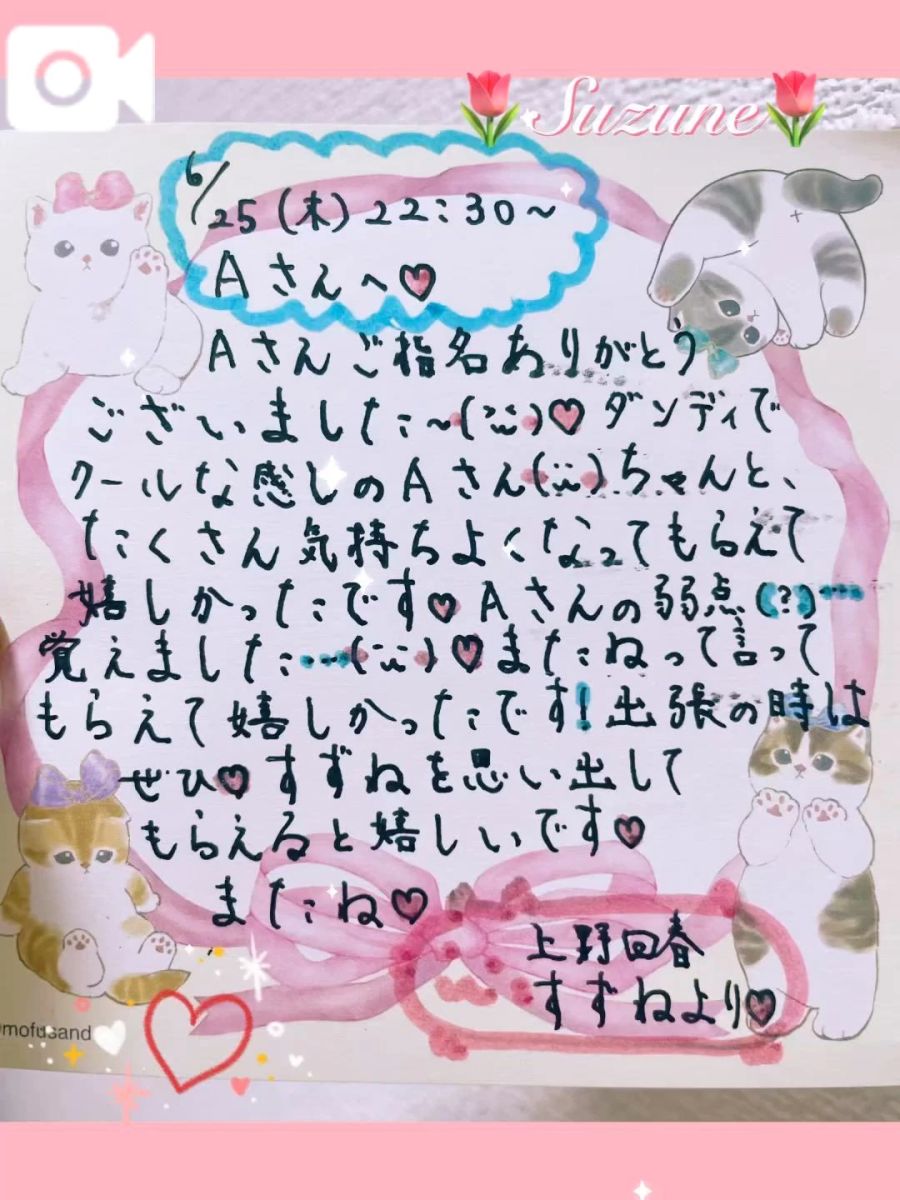 Suzune
6/25(木)22:30~
Aさんへ♡
Aさんご指名ありがとう
ございました~(¨̮)♡ ダンディで
クールな感じのAさん(¨̮)ちゃんと、
たくさん気持ちよくなってもらえて
嬉しかったです♡Aさんの弱点(?)…
覚えました…(¨̮)♡またねって言って
もらえて嬉しかったです!出張の時は
ぜひ♡すずねを思い出して
もらえると嬉しいです♡
またね♡
上野回春
すずねより♡
mofusand